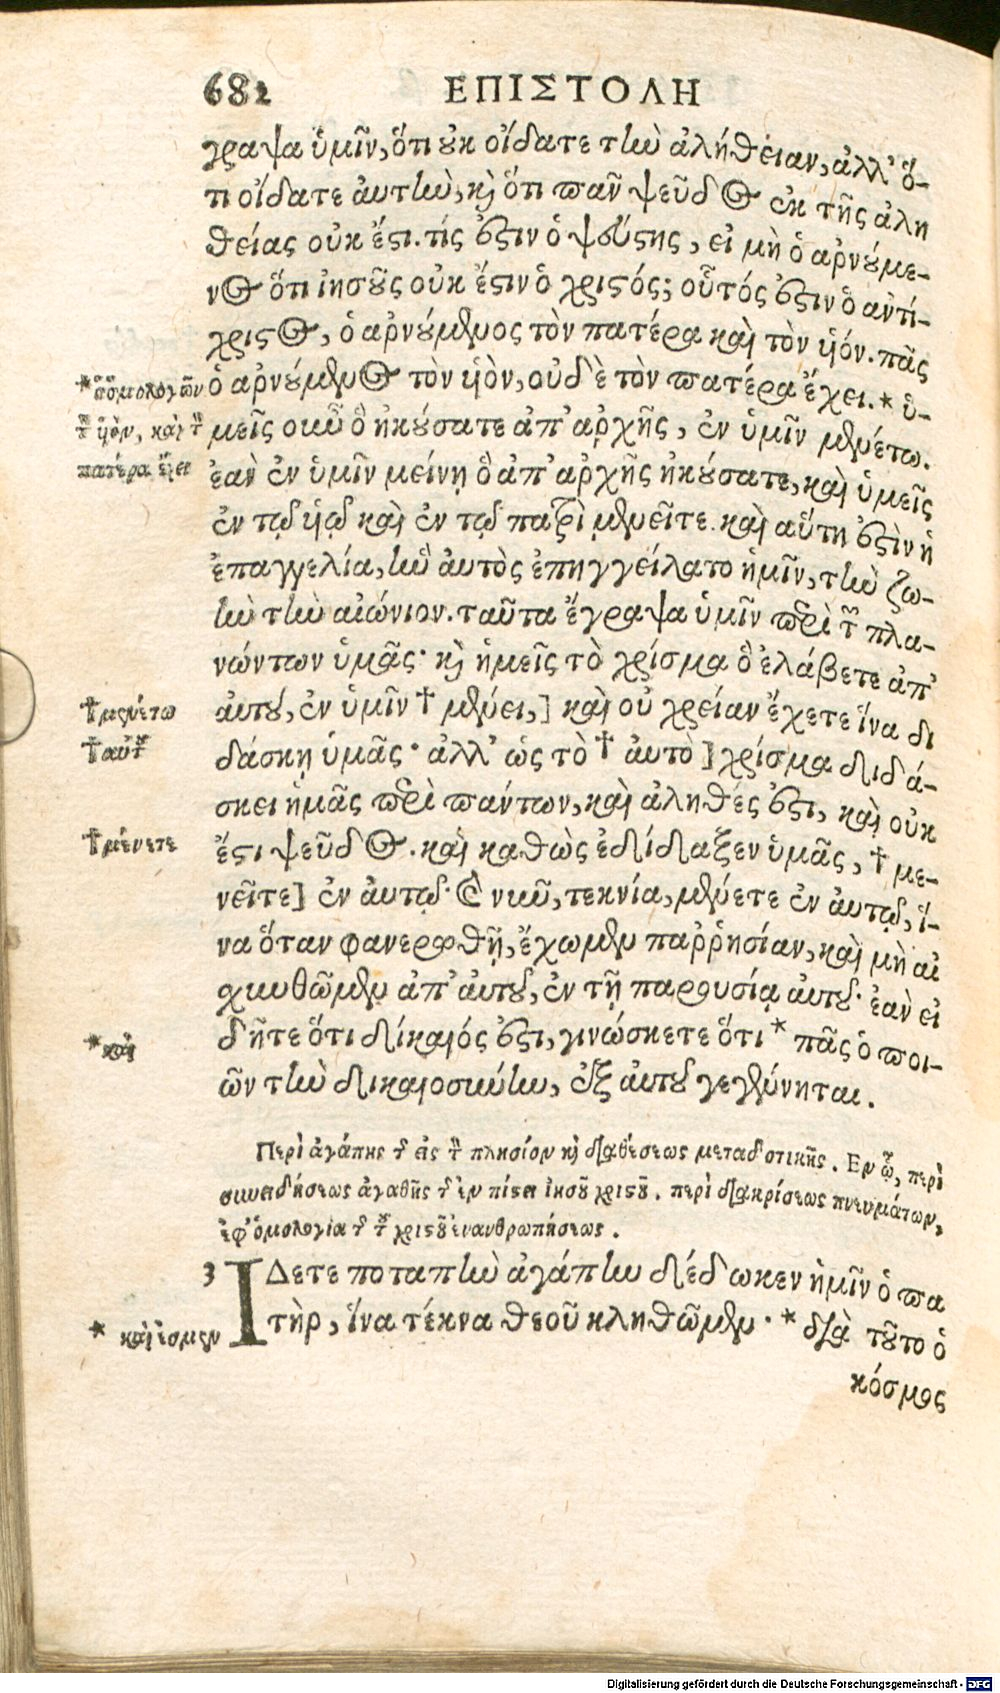 682 ΕΠΙΣΤΟΛΗ
γραψα ὑμῖν, ὅτι ȣκ οἴδατε τὴν ἀλήθειαν, ἀλλ' ὅ-
τι οἴδατε ἀυτὴν, κ̀ ὅτι πᾶν ψεῦδος ἐκ τῆς ἀλη
θείας οὐκ ἔϛι. τίς ἐϛιν ὁ ψεύϛης, εἰ μὴ ὁ ἀρνȣ́με-
νος ὅτι ἰησȣ͂ς οὐκ ἔϛιν ὁ χριϛός; οὗτός ἐϛιν ὁ ἀντί-
χριϛος, ὁ ἀρνȣ́μενος τὸν πατέρα καὶ τὸν ὑιόν. πᾶς
ὁ ἀρνȣ́μενος τὸν ὑιὸν, οὐδὲ τὸν πατέρα ἔχει. * ὑ-
μεῖς οὖν ὃ ἠκȣ́σατε ἀπ' ἀρχῆς, ἐν ὑμῖν μενέτω.
ἐὰν ἐν ὑμῖν μείνῃ ὃ ἀπ' ἀρχῆς ἠκȣ́σατε, καὶ ὑμεῖς
ἐν τῷ ὑιῷ καὶ ἐν τῷ πατρὶ μενεῖτε. καὶ αὕτη ἐϛὶν ἡ
ἐπαγγελία, ἣν ἀυτὸς ἐπηγγείλατο ἡμῖν, τὴν ζω-
ὴν τὴν αἰώνιον. ταῦτα ἔγραψα ὑμῖν περὶ τῶν πλα-
νώντων ὑμᾶς· κ̀ ἡμεῖς τὸ χρίσμα ὃ ἐλάβετε ἀπ'
ἀυτοῦ, ἐν ὑμῖν † μένει,] καὶ οὐ χρείαν ἔχετε ἵνα δι
δάσκῃ ὑμᾶς· ἀλλ' ὡς τὸ † ἀυτὸ] χρίσμα διδά-
σκει ἡμᾶς περὶ πάντων, καὶ ἀληθές ἐϛι, καὶ οὐκ
ἔϛι ψεῦδος. καὶ καθὼς ἐδίδαξεν ὑμᾶς, † με-
νεῖτε] ἐν ἀυτῷ. Καὶ νῦν, τεκνία, μένετε ἐν ἀυτῷ, ἵ-
να ὅταν φανερωθῇ, ἔχωμεν παῤῥησίαν, καὶ μὴ αἰ
χυνθῶμεν ἀπ' ἀυτοῦ, ἐν τῇ παρουσίᾳ ἀυτοῦ. ἐὰν εἰ
δῆτε ὅτι δίκαιός ἐϛι, γινώσκετε ὅτι * πᾶς ὁ ποι-
ῶν τὴν δικαιοσύνην, ἐξ ἀυτοῦ γεγέννηται.
Περὶ ἀγάπης τ͂ εἰς τ̀ πλησίον κ̀ διαθέσεως μεταδοτικῆς. Εν ᾧ, περὶ
συνειδήσεως ἀγαθῆς τ͂ ἐν πίϛει ἰησοῦ χριϛοῦ. περὶ διακρίσεως πνευμάτων,
ἐφ' ὁμολογίᾳ τ͂ τ͂ χριϛοῦ ἐνανθρωπήσεως.
3 ΙΔετε ποταπὴν ἀγάπην δέδωκεν ἡμῖν ὁ πα
τὴρ, ἵνα τέκνα θεοῦ κληθῶμεν· * διὰ τȣ͂το ὁ
κόσμος
* ὁ ὁμολογῶν
τ̀ ὑιὸν, καὶ τ̀
πατέρα ἔχει
† μενέτω
† αὐτȣ͂
† μένετε
* καὶ
* καὶ ἐσμεν
Digitalisierung gefördert durch die Deutsche Forschungsgemeinschaft - DFG